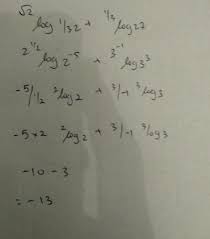 √2 log 1/32 + 1/3 log 27
2^1/2 log 2^-5 + 3^-1 log 3^3
-5/1/2 ²log 2 + 3/-1 ³log 3
-5×2 ²log 2 + 3/-1 ³log 3
-10 - 3
= -13